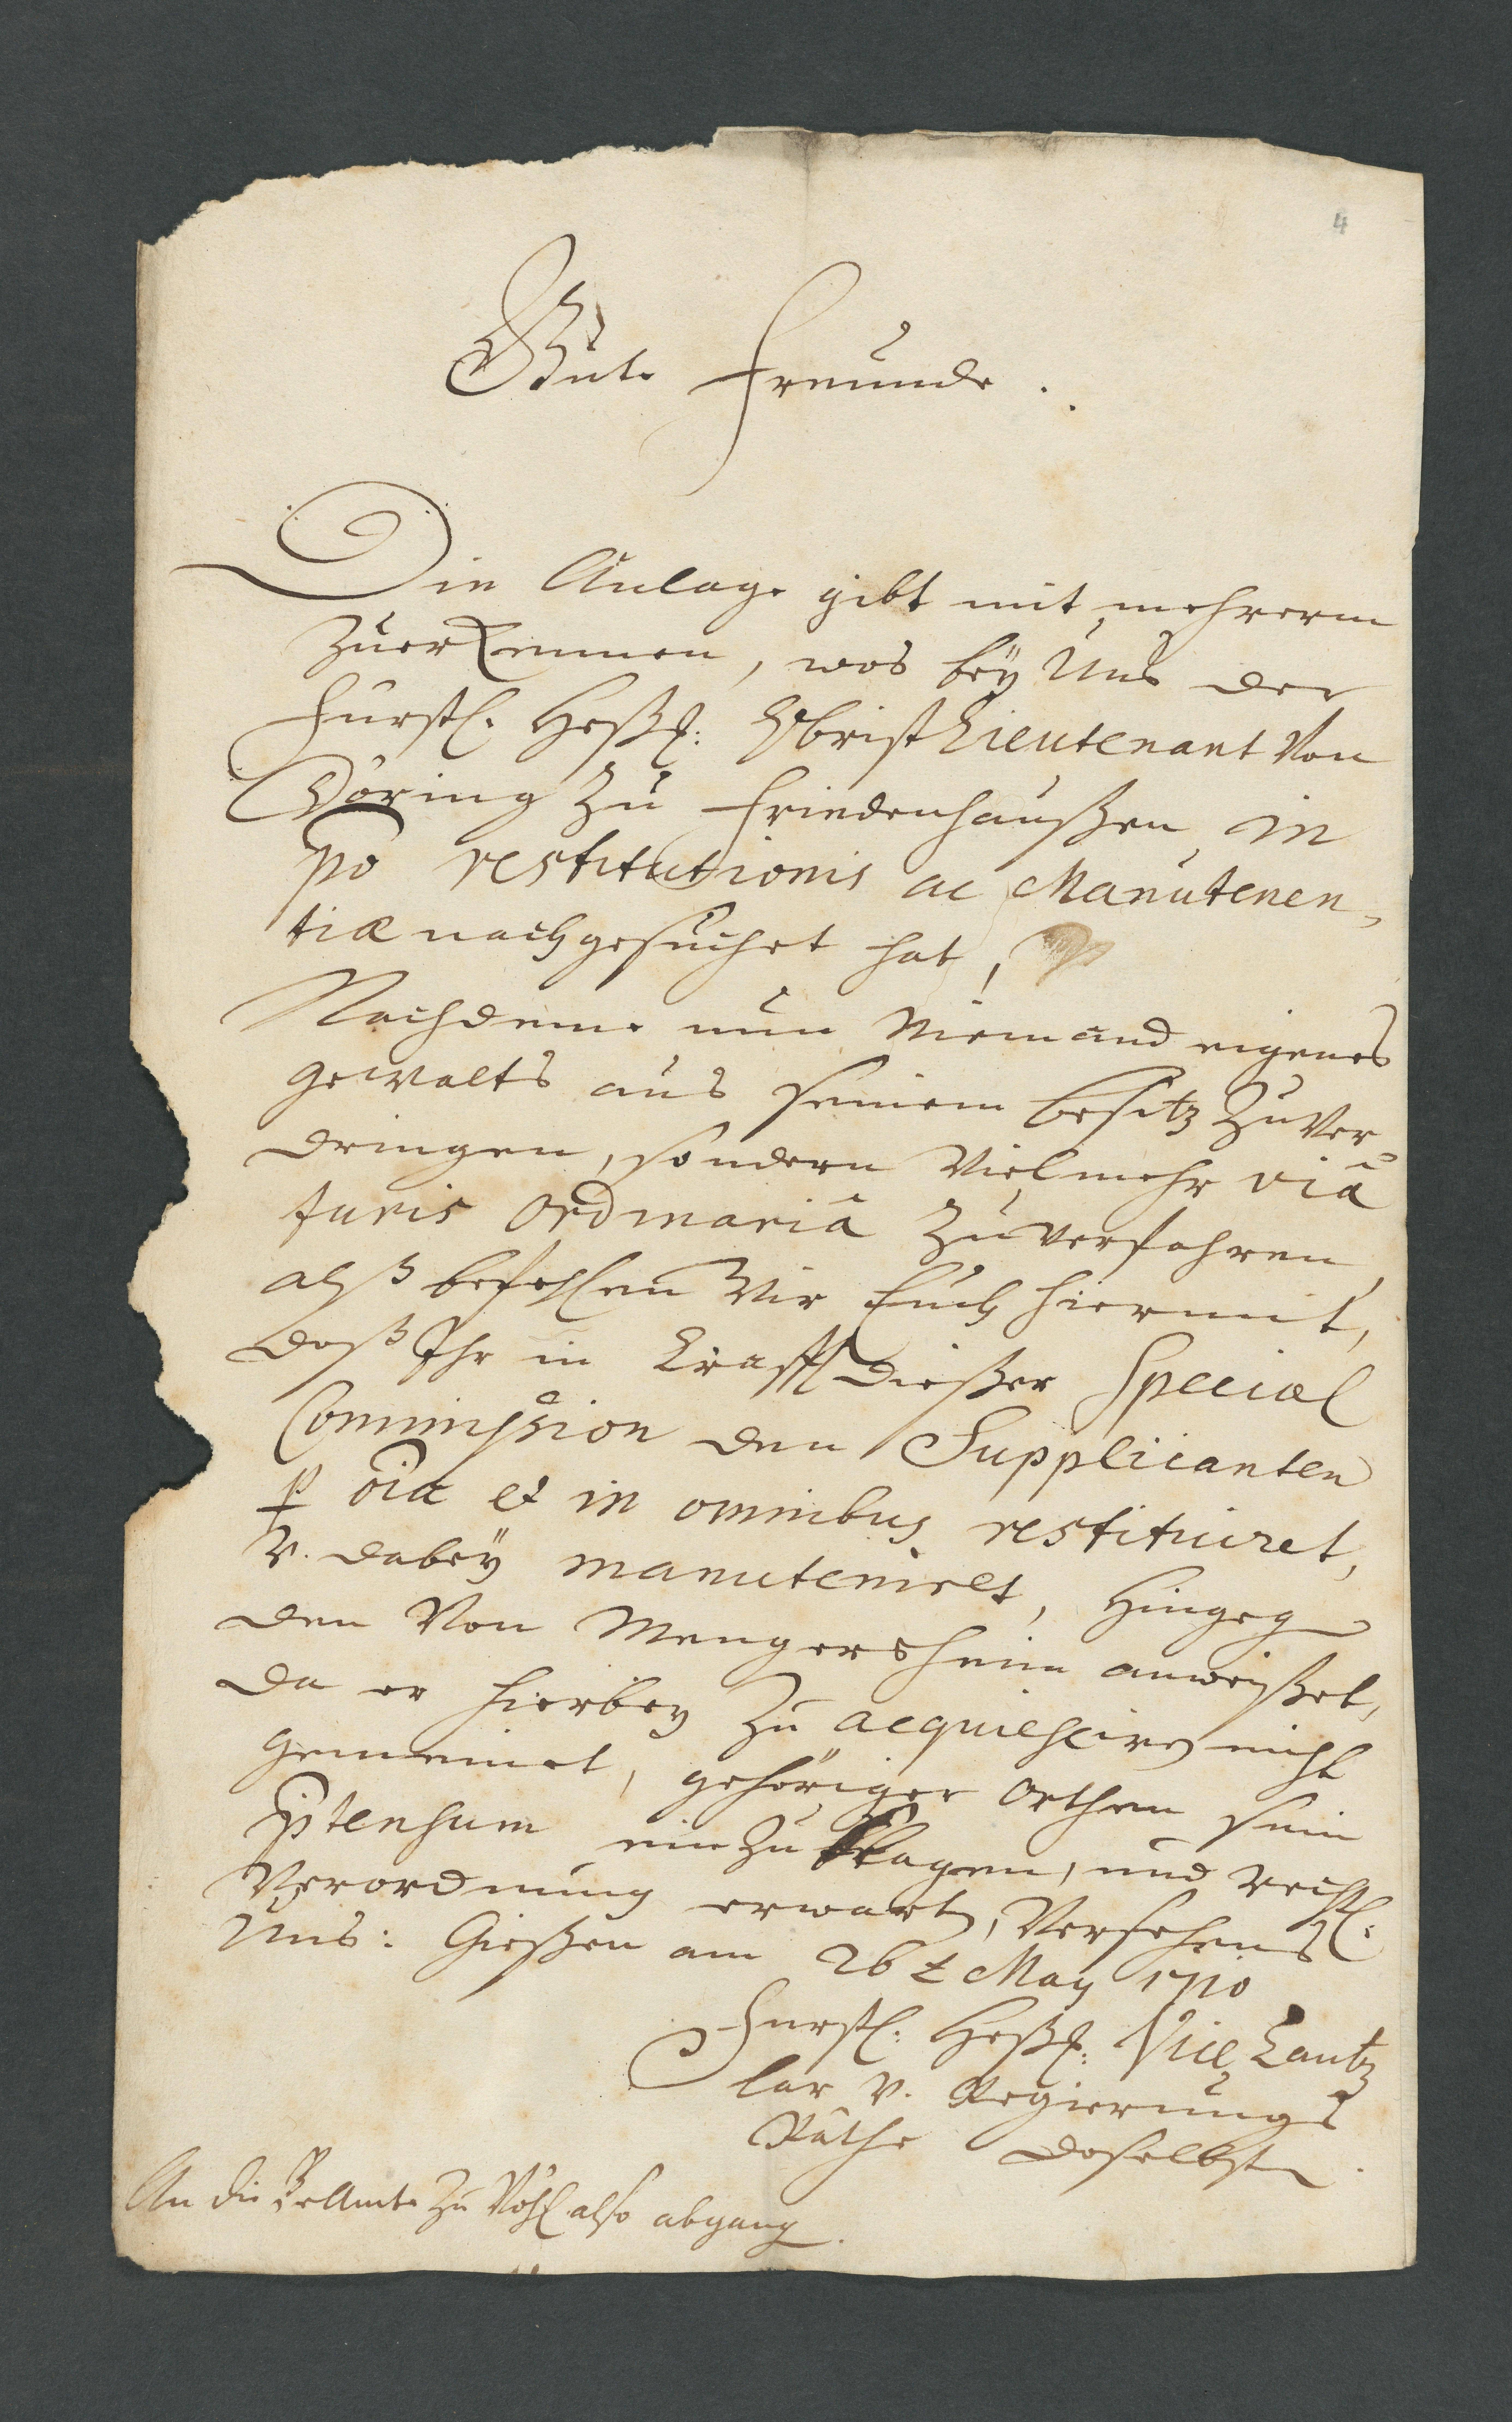 4
Gute Freunde.
Die Anlage gibt mit mehrerm
zuerkennen, was bey Uns der
Fürstl. Heßl: Obrist Lieutenant von
Döring zu Friedenhaußen in
pō restitutionis ac Manutenen,
tiæ nachgesuchet hat,
Nachdeme nun Niemand eigenes
gewalts aus seinem besitz zu ver
dringen, sondern vielmehr viâ
Juris ordinariâ zu verfahren,
alß befehlen Wir Euch hiermit,
daß Ihr in Krafft dießer Special
Commission den Supplicanten
p oīa et in omnibus restituiret,
v. dabey manuteniret, hingeg
den von Mengersheim anweißet,
da er hierbey zu acquiesciren nicht
gemeinet, gehöriger Orthen sein
ptensum einzuklagen, und rechtl:
Verordnung erwart, Versehens
Uns: Gießen am 26t May 1710
Fürstl: Heßl: Vice Cantz
lar v. Regierungs
Räthe daselbst.
An die Beamte zu Vöhl also abgang.